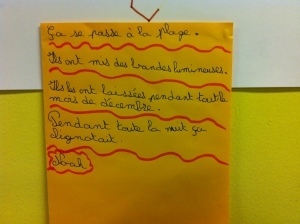 Ça se passe à la plage.
Ils ont mis des brandes lumineuses.
Ils les ont laissées pendant tout le
mois de décembre.
Pendant toute la nuit ça
clignotait.
Norah